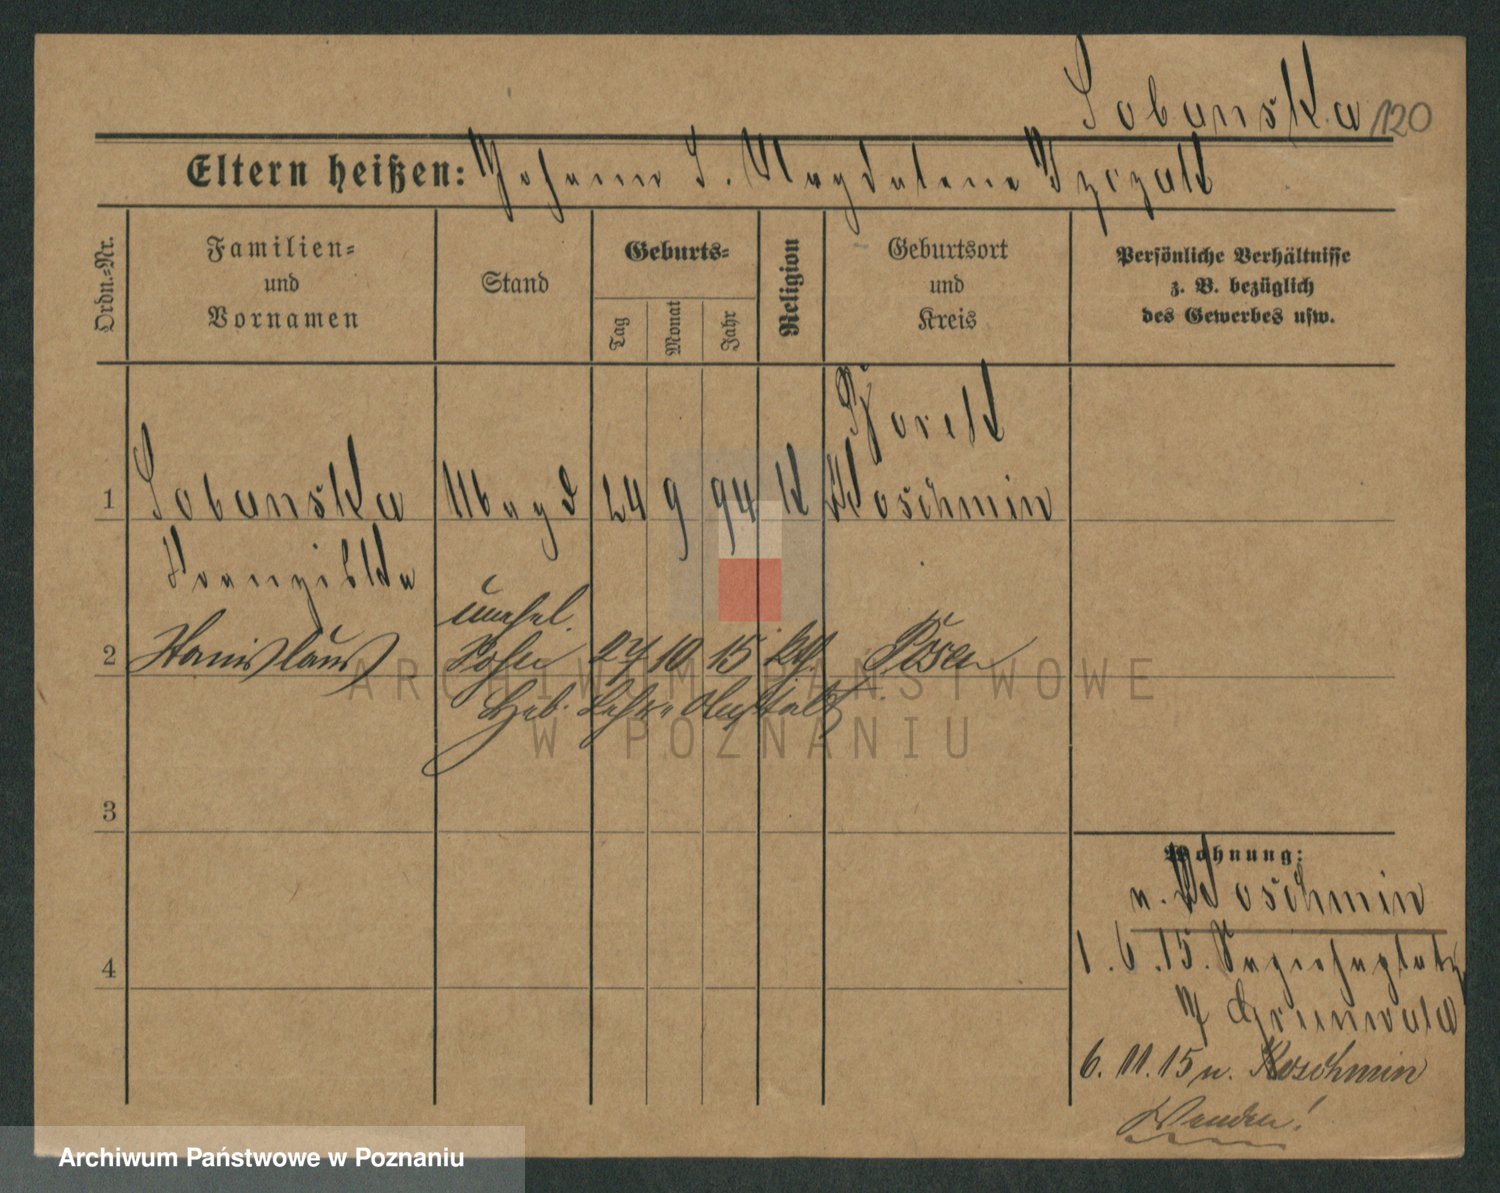 Sobanska 120
Eltern heißen: Johann S. Magdalena
Ordn.-Nr.
Familien- und Vornamen
Stand
Geburts-
Tag
Monat
Jahr
Religion
Geburtsort und Kreis
Persönliche Verhältnisse z. B. bezüglich des Gewerbes usw.
Borek
1 Sobanska Magd 24 9 94 K Koschmin
Franziska
unehel.
2 Stanislaus Sohn 27 10 15 kth. Posen
Heb. Lehr-Anstalt
3
Wohnung:
n. Koschmin
4
1.6.15.
Grunwald
6.11.15 n. Koschmin
Wenden!
ARCHIWUM PAŃSTWOWE
W POZNANIU
Archiwum Państwowe w Poznaniu